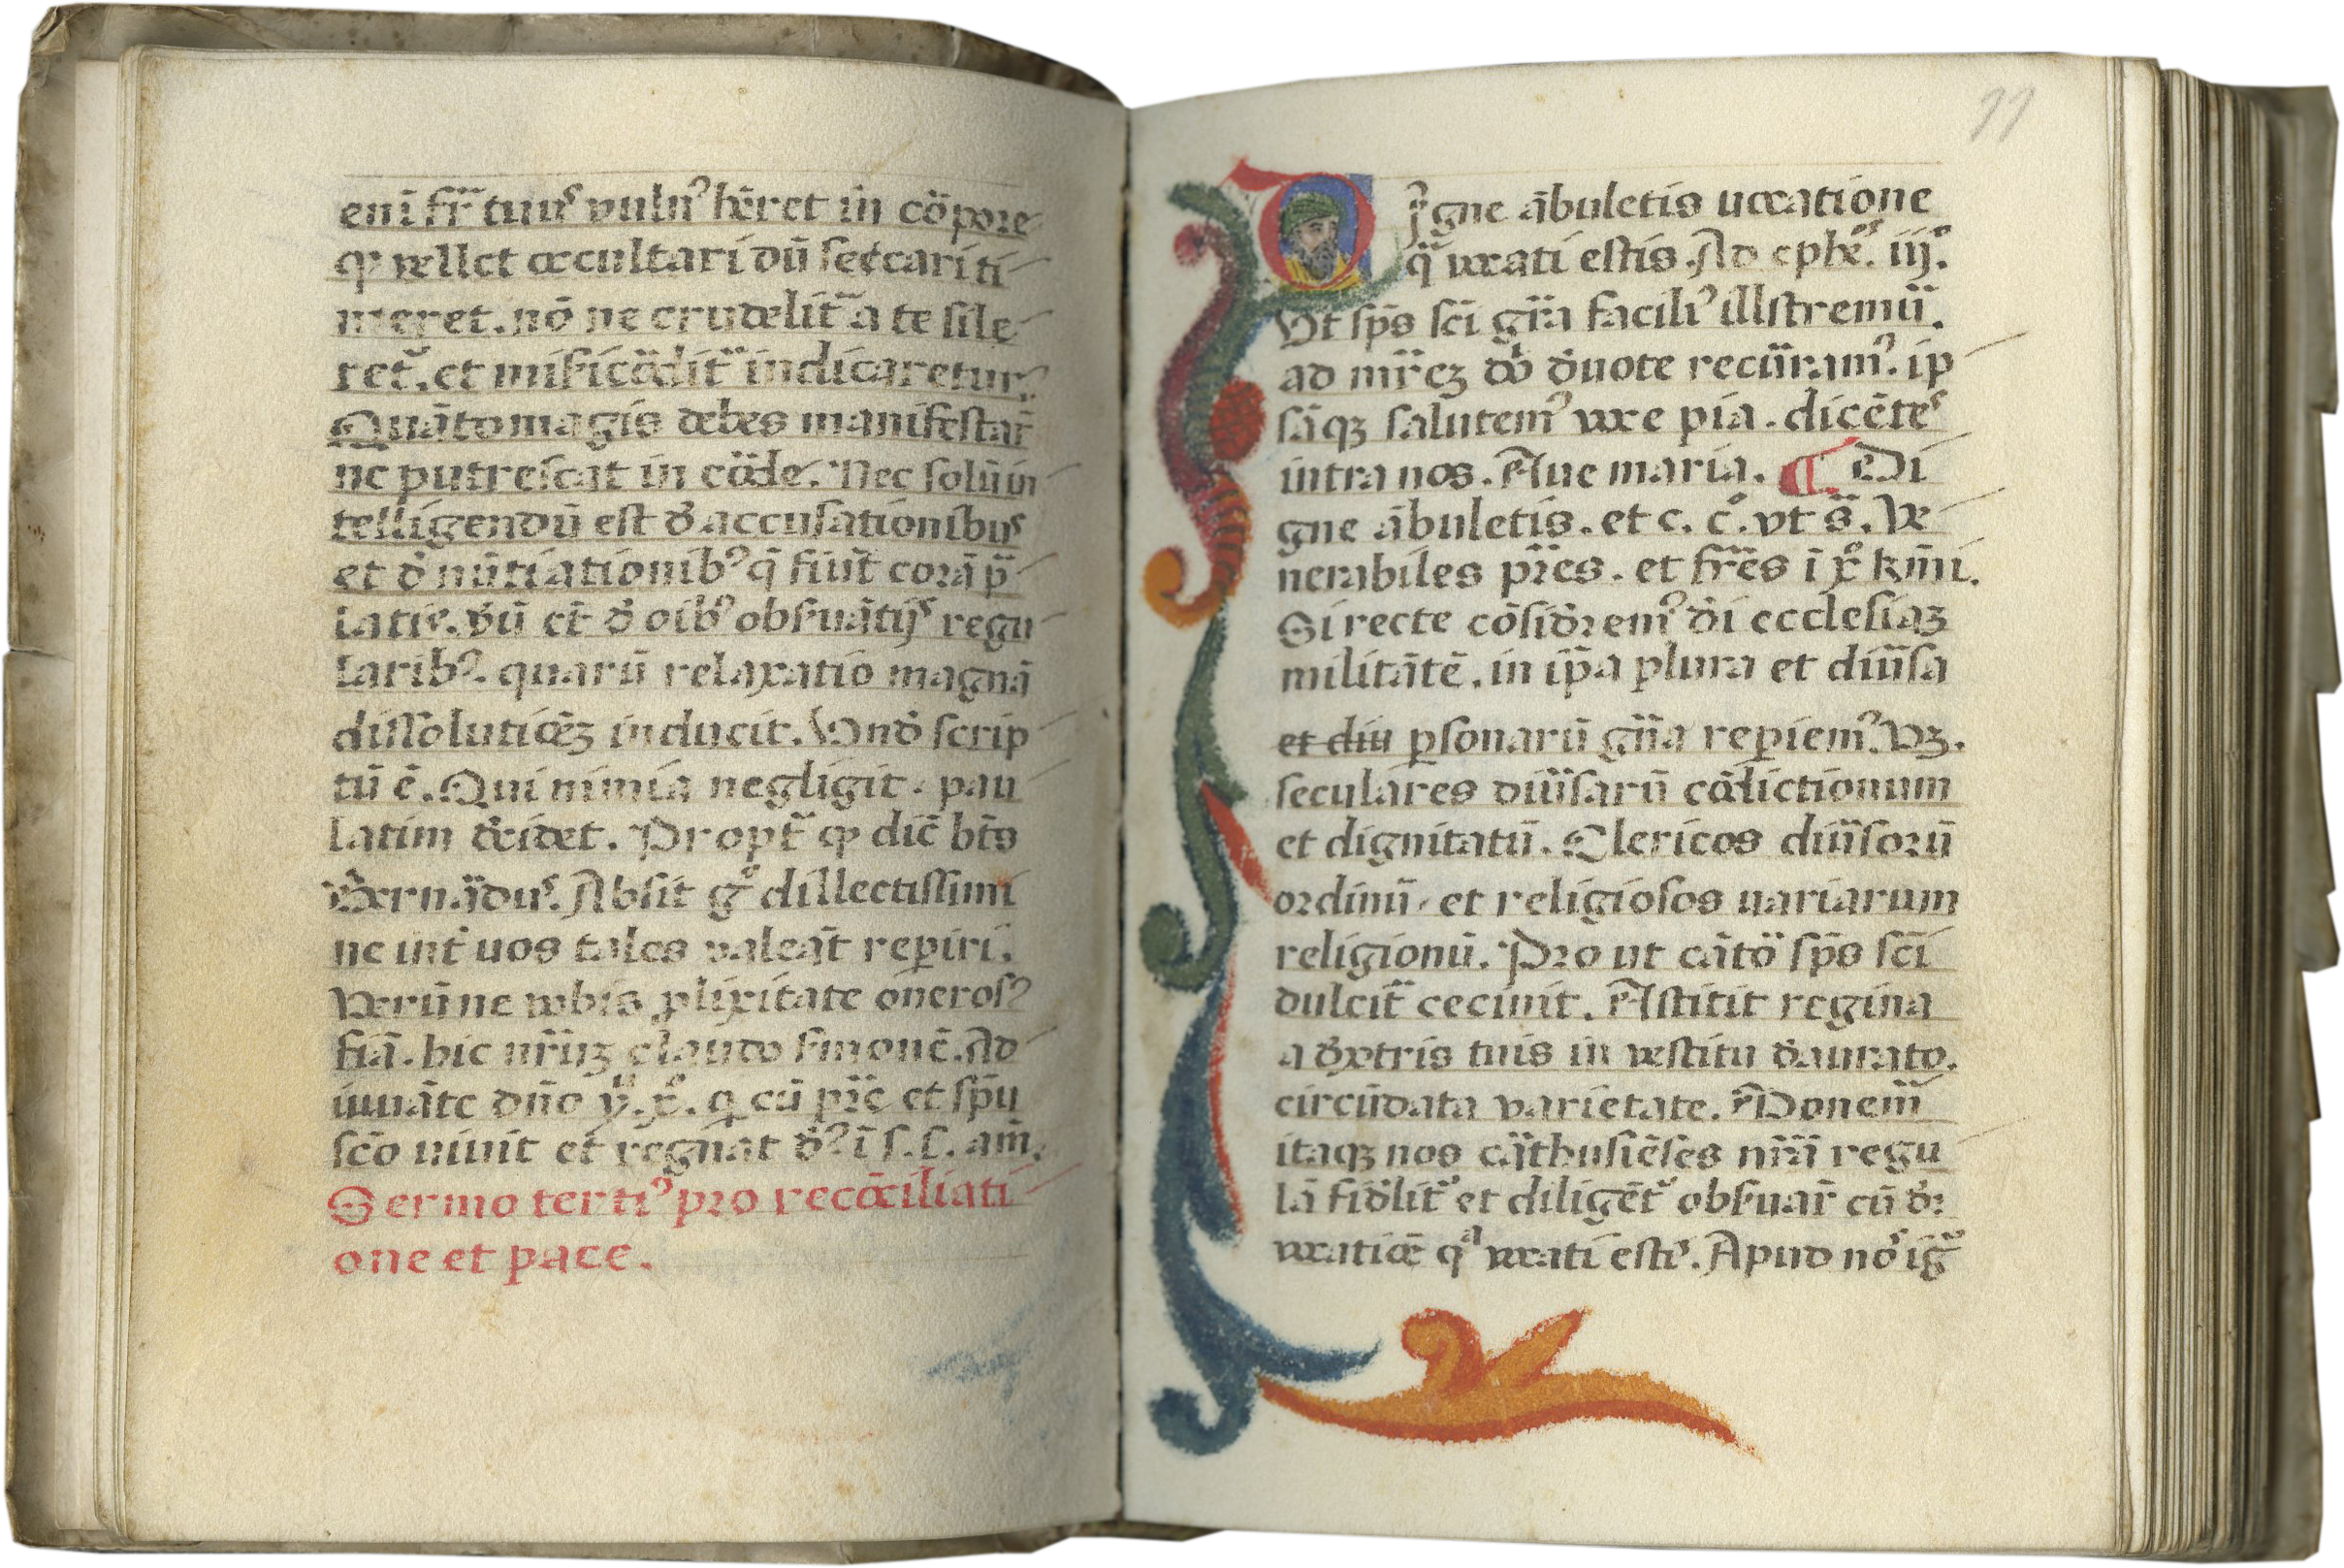 enī fr̄ tuus vuln⁹ hēret in cōpore
qꝫ vellet occultari dū seccari ti
meret. nō ne crudelit̄ a te sile
ret̄. et mīsicōdit̄ indicaretur.
Quāto magis debes manifestar̄
ne putrescat in cōde. Nec solū in
telligendū est d̄ accusationibus
et d̄ nūtiationib⁹ q̄ fiūt corā p̄
latis. vū et̄ d̄ oīb⁹ obsuātijs regu
larib⁹. quarū relaxatio magnā
dissolutiōēꝫ inducit. Vnd̄ scrip
tū ē. Qui nimia negligit. pau
latim d̄cidet. Propt̄ qꝫ dic̄ bt̄s
Bernādus. Absit gº dillectissimi
ne int̄ uos tales valeāt reperiri.
Verū ne vobis ꝓlixitate oneros⁹
fiā. hic nr̄ūꝫ claudo smonē. Ad
iuuāte dn̄o y̾. x̾. q cū pr̄e et sp̄u
sc̄o uiuit et regnat d̄⁹ ī s. s. am̄.
Sermo terti⁹ pro recōciliati
one et pace.
77
Digne ābuletis uocatione
q̄ vocati estis. Ad ephe̾s. iijº.
Vt sp̄s sc̄i gr̄a facili⁹ illstremū.
ad mr̄eꝫ d̄i d̄uote recūram⁹. ip
sāqꝫ salutem⁹ voce pia. dicētes
intra nos. Aue maria. ¶ Di
gne ābuletis. et c. cº. vt s̄. Ve
nerabiles pr̄es. et fr̄es ī xº kmī.
Si recte cōsid̄rem⁹ d̄i ecclesiaꝫ
militātē. in ip̄a plura et diūsa
et diu ꝑsonarū gn̄a reꝑiem⁹. vꝫ.
seculares diūsarū cōdictionum
et dignitatū. Clericos diūsorū
ordinū. et religiosos uariarum
religionū. Pro ut cātō sp̄s sc̄i
dulcit̄ cecinit. Astitit regina
a d̄xtris tuis in vestitu d̄aurato.
circūdata varietate. Ponem̄
itaqꝫ nos cāthusiēses nr̄ā regu
lā fid̄lit̄ et diligēt̄ obsuar̄ cū d̄:
vocatiōe qª vocati estis. Apud nos ig̾